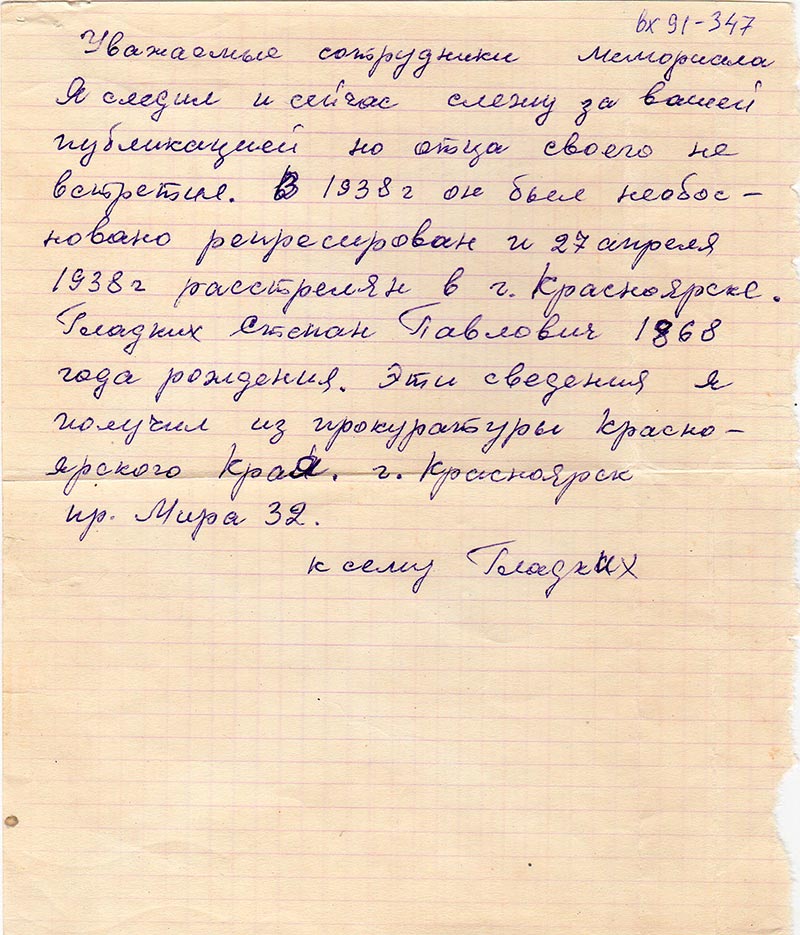 вх 91-347
Уважаемые сотрудники Мемориала
Я следил и сейчас слежу за вашей
публикацией но отца своего не
встретил. В 1938г он был необос-
новано репресирован и 27 апреля
1938г расстрелян в г. Красноярске.
Гладких Степан Павлович 1868
года рождения. Эти сведения я
получил из прокуратуры Красно-
ярского Края. г. Красноярск
пр. Мира 32.
к сему Гладких